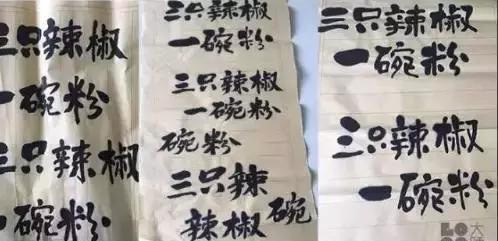 三只辣椒
一碗粉
三只辣椒
一碗粉
三只辣椒
一碗粉
三只辣椒
一碗粉
碗粉
三只辣
辣椒碗
三只辣椒
一碗粉
三只辣椒
一碗粉
LO